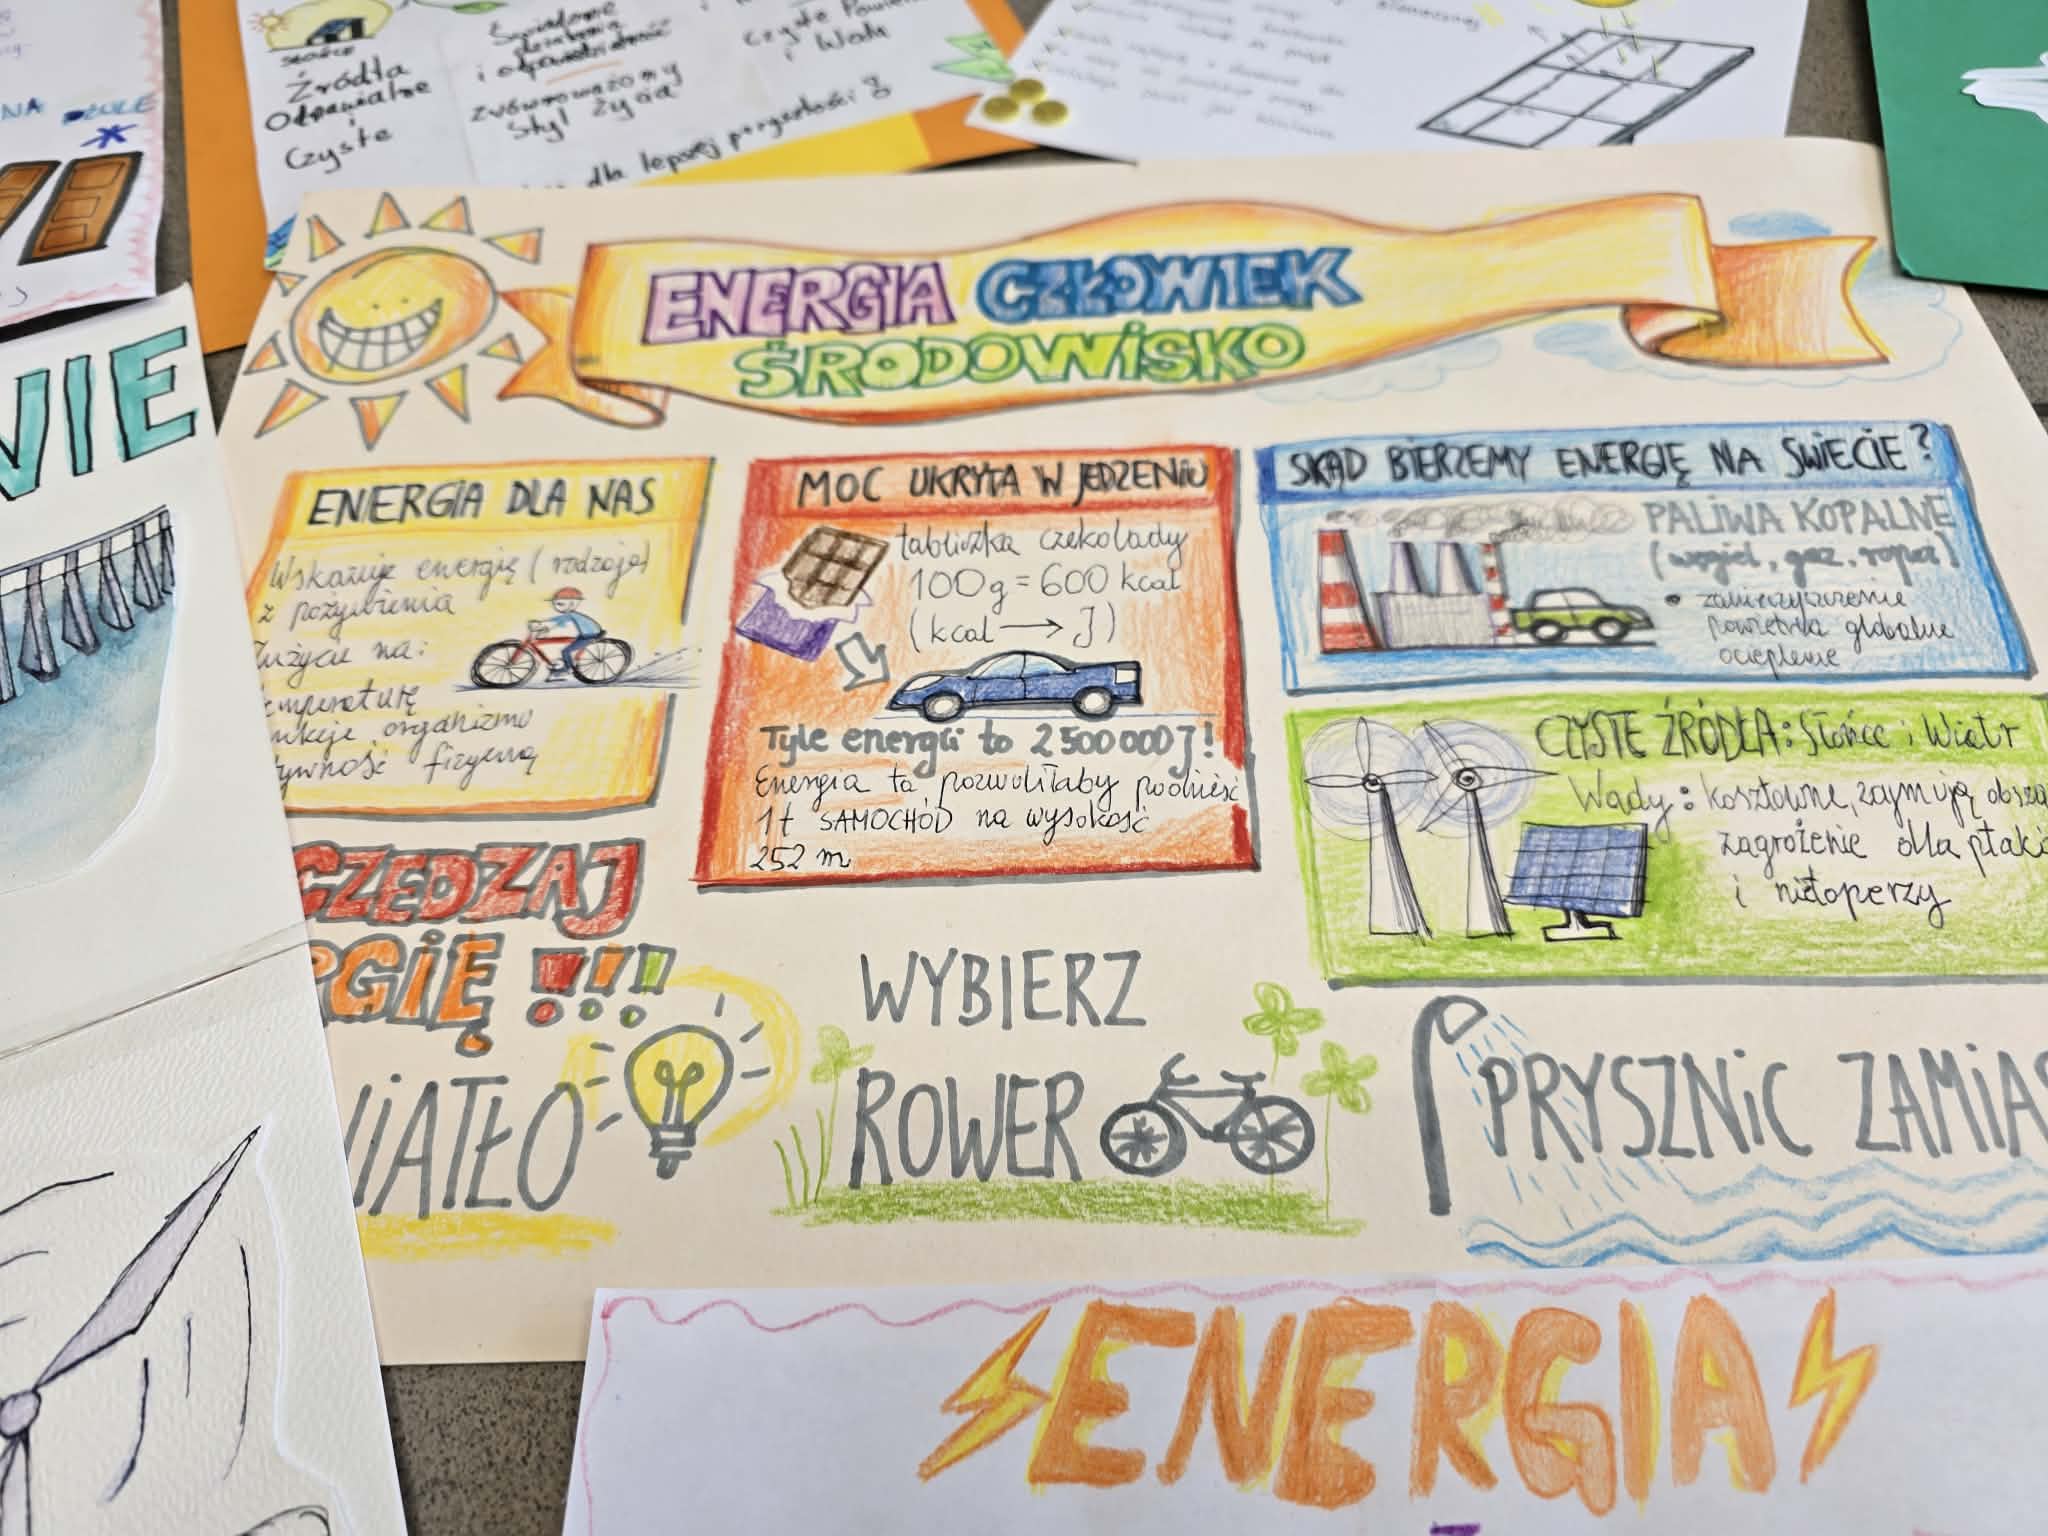 NA
Źródła
Odnawialne
i
Czyste
Świadome
i
zrównoważony
Styl życia
Czyste
i Woda
dla lepszej przyszłości
WIE
ENERGIA CZŁOWIEK
ŚRODOWiSKO
ENERGIA DLA NAS
energię (rodzaje)
z pożywienia
na:
fizyczną
MOC UKRYTA W JEDZENIU
tabliczka czekolady
100g = 600 kcal
(kcal → J)
Tyle energii to 2500000J!
Energia ta pozwoliłaby podnieść
1t SAMOCHÓD na wysokość
252 m
SKĄD BIERZEMY ENERGIĘ NA ŚWIECIE?
PALIWA KOPALNE
(węgiel, gaz, ropa)
• zanieczyszczenie
powietrza globalne
ocieplenie
CZYSTE ŹRÓDŁA: Słońce i Wiatr
Wady: kosztowne, zajmują
zagrożenie dla
i nietoperzy
CZĘDZAJ
RGIĘ !!!
IATŁO
WYBIERZ
ROWER
PRYSZNiC ZAMiAS
ENERGIA